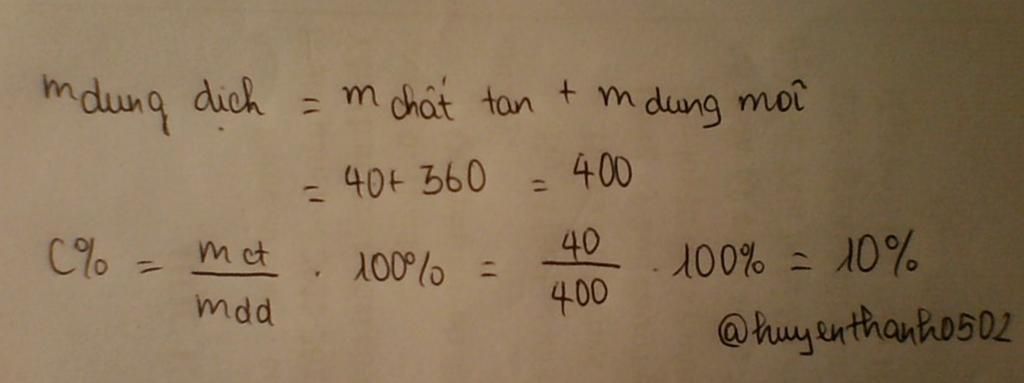 m dung dịch = m chất tan + m dung môi
= 40 + 360 = 400
C% = m ct / m dd . 100% = 40 / 400 . 100% = 10%
@huyenthanh0502